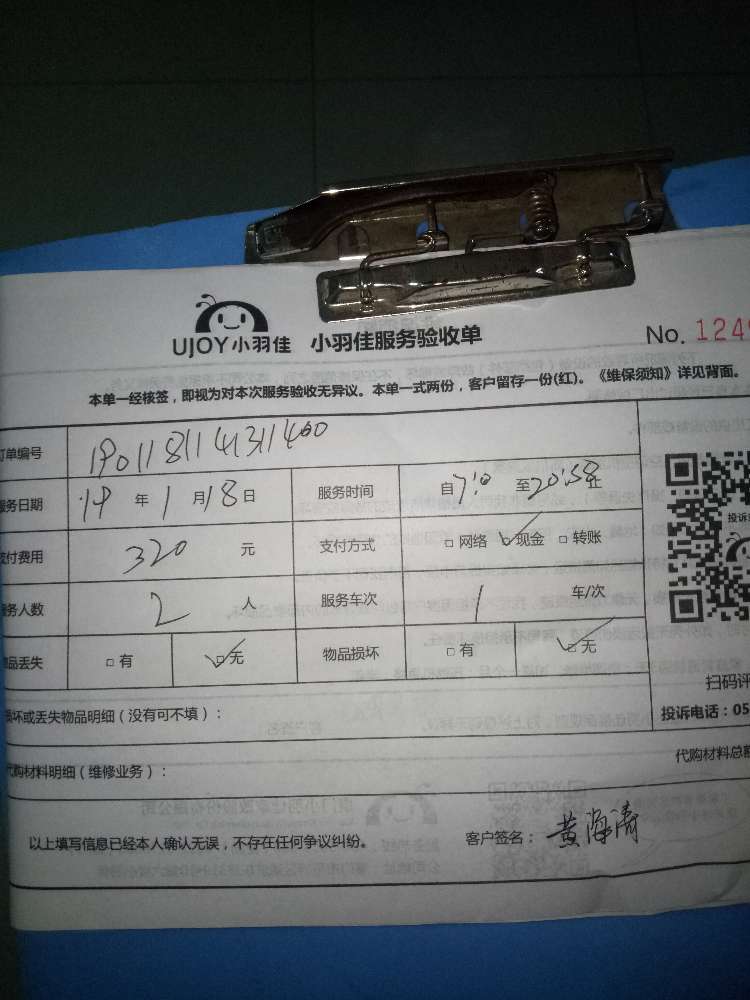 UJOY小羽佳 小羽佳服务验收单 No. 124
本单一经核签，即视为对本次服务验收无异议。本单一式两份，客户留存一份(红)。《维保须知》详见背面。
订单编号 190118114131400
服务日期 19 年 1 月 18 日 服务时间 自 至 20:58 止
支付费用 320 元 支付方式 □ 网络 ☑ 现金 □ 转账
服务人数 2 人 服务车次 1 车/次
物品丢失 □ 有 ☑ 无 物品损坏 □ 有 ☑ 无
投诉
扫码评
损坏或丢失物品明细（没有可不填）： 投诉电话：05
代购材料明细（维修业务）： 代购材料总额
以上填写信息已经本人确认无误，不存在任何争议纠纷。 客户签名：黄海清